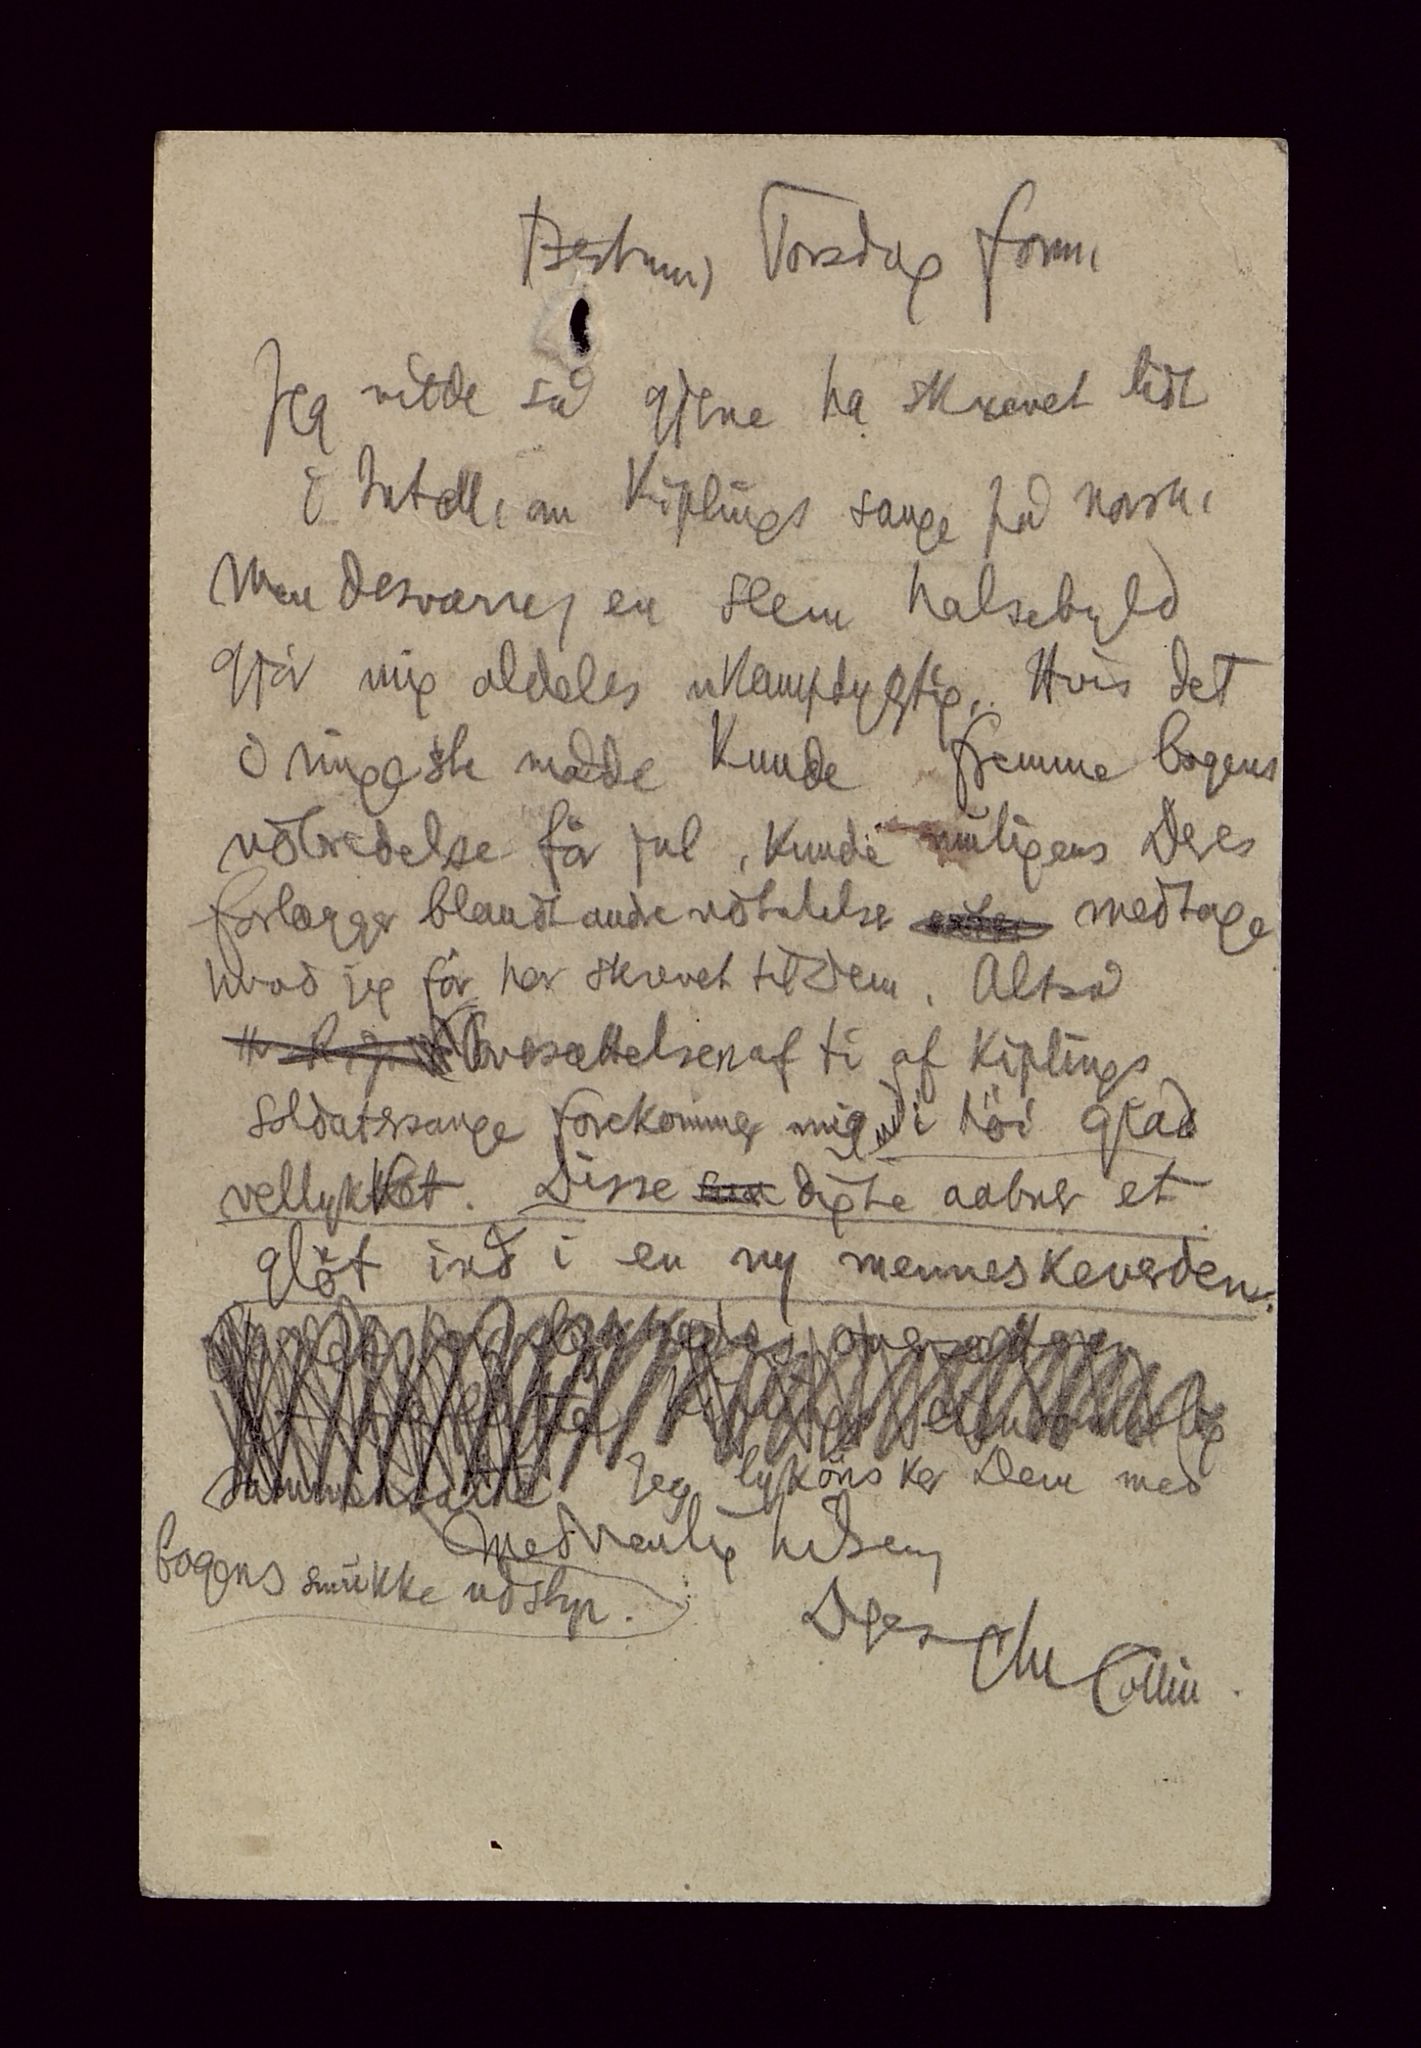 Torsdag form.
Jeg vilde så gjerne ha skrevet lidt
i Intell. om Kiplings sange på norsk.
Men desværre, en slem halsebyld
gjör mig aldeles ukampdygtig. Hvis det
i ringeste måde kunde fremme bogens
udbredelse för jul, kunde muligens Deres
forlægger blandt andre udtalelser medtage
hvad jeg för har skrevet til Dem. Altså
Oversættelsen af ti af Kiplings
soldatersange forekommer mig i höi grad
vellykket. Disse digte aabner et
glöt ind i en ny menneskeverden.
oversættere
Jeg lykönsker Dem med
bogens smukke udstyr.
Med venlig hilsen,
Deres Chr Collin.